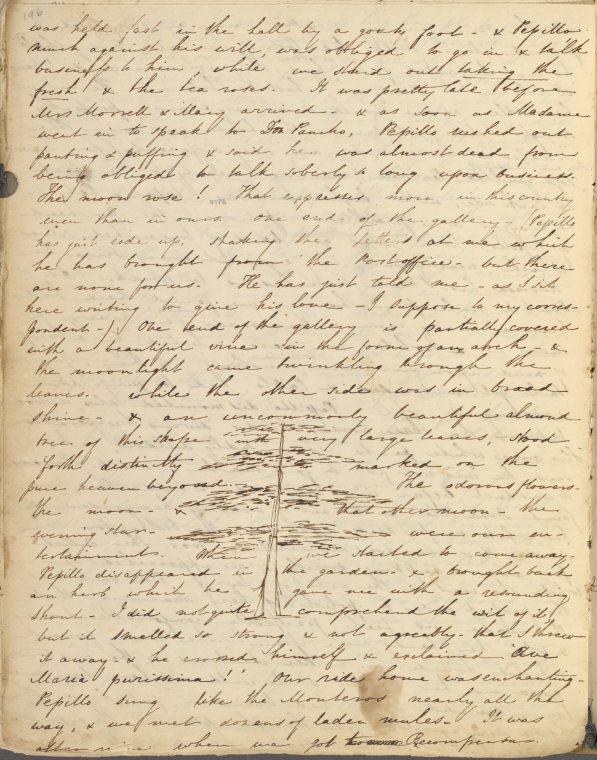 196
was held fast in the hall by a gouty foot - & Pepillo
much against his will, was obliged to go in & talk
business to him, while we staid out taking the
fresh & the tea roses. It was pretty late before
Mrs Morrell & Mary arrived - & as soon as Madame
went in to speak to Don Pancho, Pepillo rushed out
panting & puffing & said he was almost dead from
being obliged to talk soberly so long upon business.
The moon rose! That expresses more in this country
even than in ours. One end of the gallery - (Pepillo
has just rode up, shaking the letters at me which
he has brought from the Post office - but there
are none for us. He has just told me - as I sit
here writing to give his love - I suppose to my corres-
pondent -). One end of the gallery is partially covered
with a beautiful vine in the form of an arch - &
the moonlight came twinkling through the
leaves. while the other side was in broad
shine - & an uncommonly beautiful almond
tree of this shape with very large leaves, stood
forth distinctly marked on the
pure heaven beyond. The odorous flowers -
the moon - & that other moon - the
evening star - were our en-
tertainment. When we started to come away -
Pepillo disappeared in the garden - & brought back
an herb which he gave me with a resounding
shout - I did not quite comprehend the wit of it,
but it smelled so strong & not agreeably - that I threw
it away - & he crossed himself & exclaimed "Ave
Maria purissima!" Our ride home was enchanting -
Pepillo sung like the Monteros nearly all the
way, & we met dozens of laden mules - It was
when we got Recompensa.